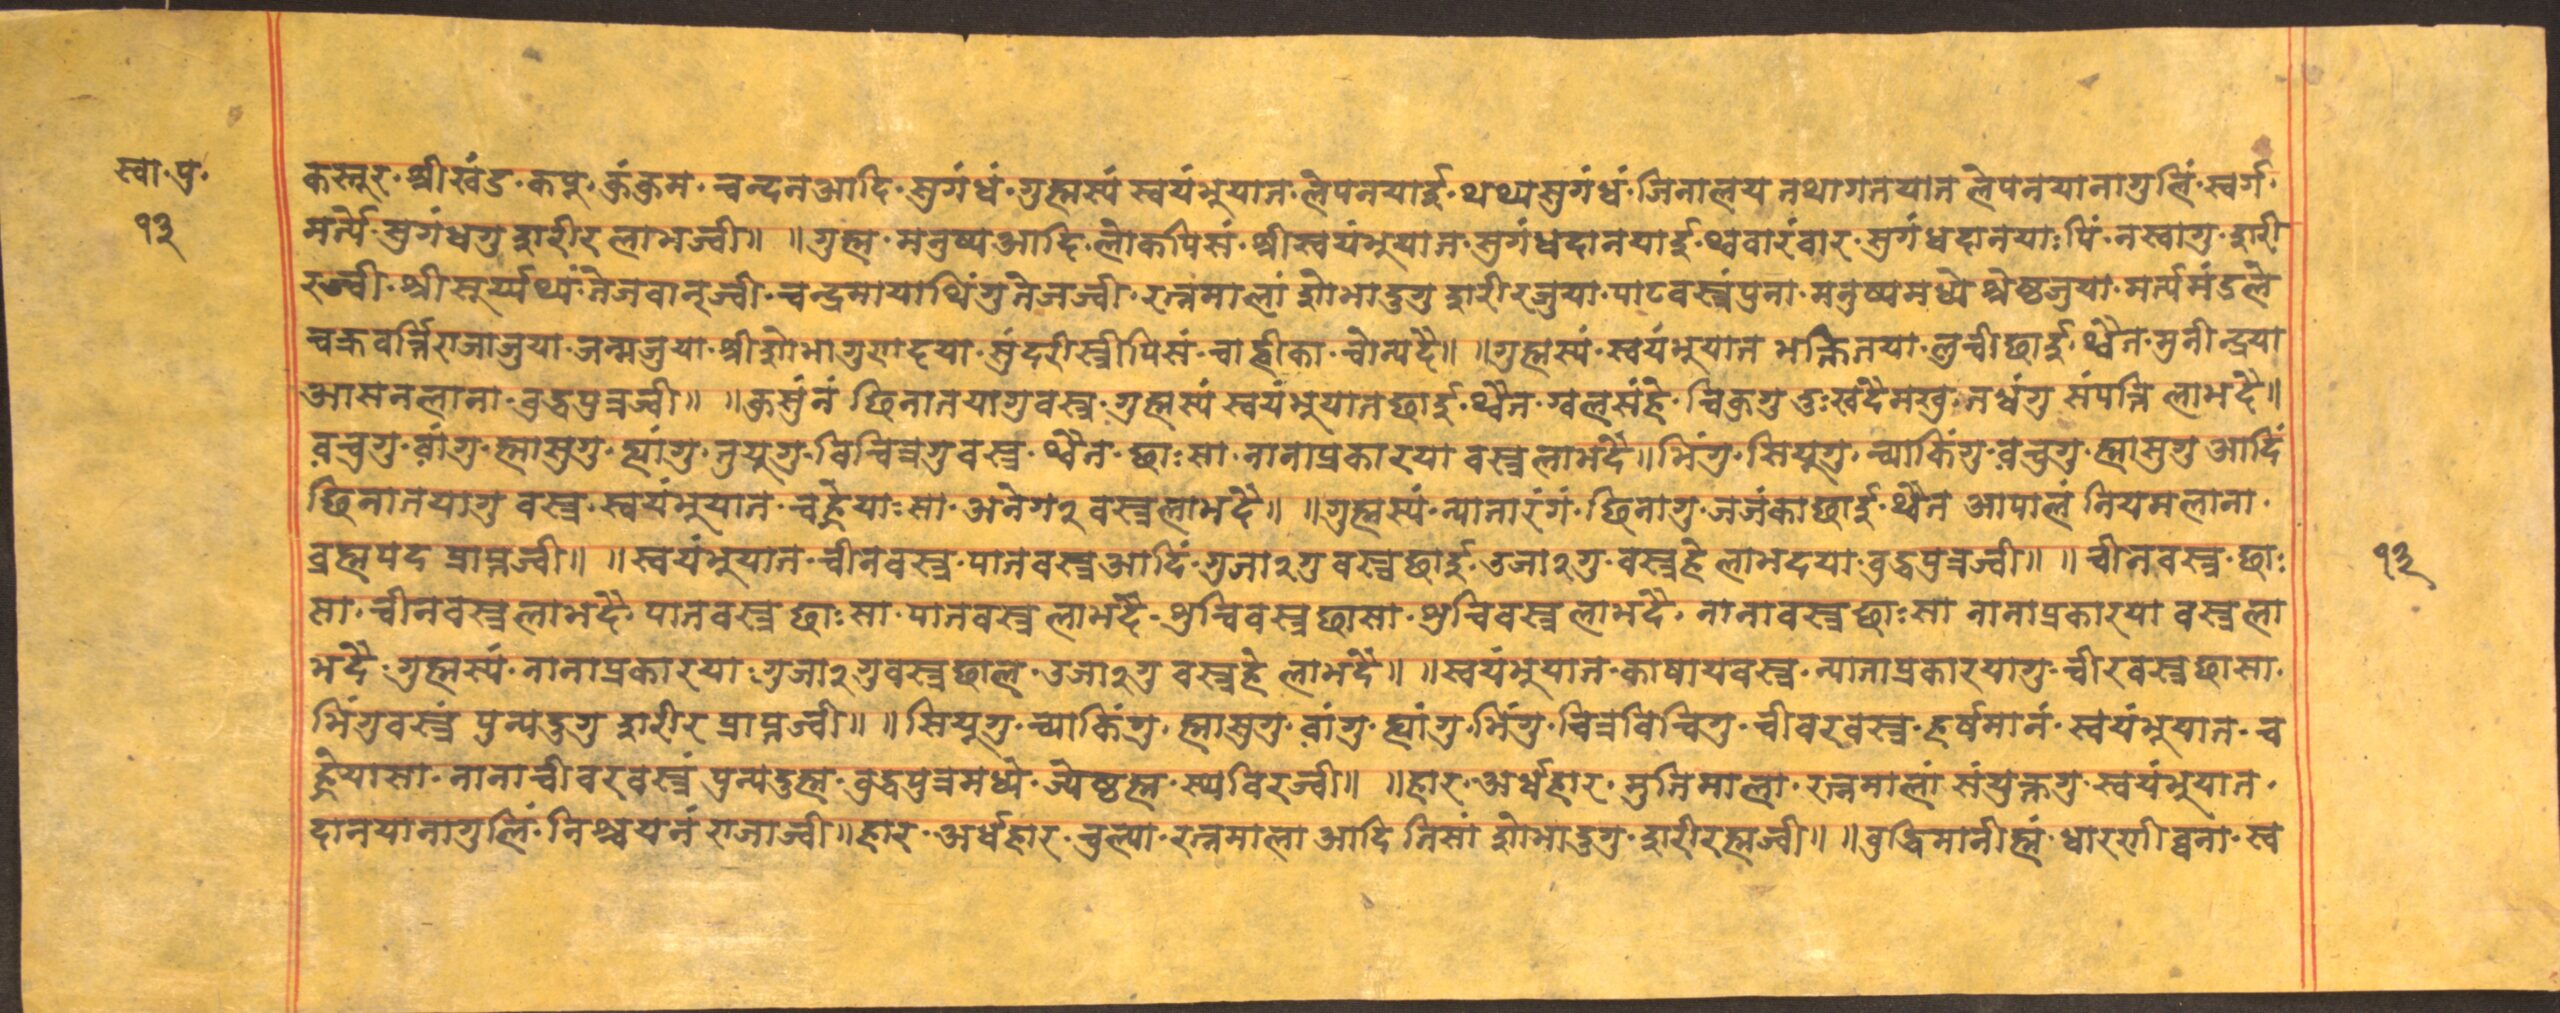 स्वा·पु·
१३
कस्तूर·श्रीखंड·कपु·कुंकुम·चन्दनआदि·सुगंधं·गुह्मस्यं स्वयंभुयात·लेपनयाई·थथ्यसुगंधं·जिनालय तथागतयात लेपनयानागुलिं·स्वर्ग·
मर्त्य·सुगंधगु शरीर लाभज्वी॥ ॥गुह्म·मनुष्यआदि·लोकपिसं·श्रीस्वयंभुयात·सुगंधदानयाई·थ्ववारंवार·सुगंधदानयाःपिं·नस्वागु·शरी
रज्वी·श्रीसूर्य्यथ्यं·तेजवान्ज्वी·चन्द्रमायाथिंगु तेजज्वी·रत्नमालां शोभादुगु शरीरजुया·पाटवस्त्रंपुना·मनुष्यमध्ये श्रेष्ठजुया·मर्त्यमंडले
चक्रवर्त्तिराजाजुया·जन्मजुया·श्रीशोभागुणदया·सुंदरीस्त्रीपिसं·चाह्वीका·चोन्यदै॥ ॥गुह्मस्यं·स्वयंभुयात भक्तितया·लुचीछाई·थ्वैत·मुनीन्द्रया
आसनलाना·बुद्धपुत्रज्वी॥ ॥कुसुंनं छिनातयागुवस्त्र·गुह्मस्यं स्वयंभुयातछाई·थ्वैत·ग्वलसंहे·चिकुगु दुःखंदैमखु·नधंगु संपत्ति लाभदै॥
वंचुगु·वांगु·ह्मासुगु·ह्यांगु·तुयुगु·विचित्रगुवस्त्र·थ्वैत·छाःसा·नानाप्रकारया वस्त्रलाभदै॥भिंगु·सियुगु·च्याकिंगु·वंचुगु·ह्मासुगु आदिं
छिनातयागु वस्त्र·स्वयंभुयात·चह्रेयाःसा·अनेग२ वस्त्रलाभदै॥ ॥गुह्मस्यं·न्यानारंगं·छिनागु·जजंकाछाई·थ्वैत आपालं नियमलाना·
ब्रह्मपद प्राप्तज्वी॥ ॥स्वयंभुयात·चीनवस्त्र·पातवस्त्रआदिं·गुजा२गु वस्त्रछाई·उजा२गु·वस्त्रहे लाभदया·बुद्धपुत्रज्वी॥ ॥चीनवस्त्र·छाः
सा·चीनवस्त्रलाभदै·पातवस्त्र छाःसा·पातवस्त्र लाभदै·शुचिवस्त्र छासा·शुचिवस्त्र लाभदै·नानावस्त्रछाःसा नानाप्रकारया वस्त्रला
भदै·गुह्मस्यं·नानाप्रकारया·गुजा२गुवस्त्रछाल·उजा२गु वस्त्रहे लाभदै॥ ॥स्वयंभुयात·काषायवस्त्र·न्याताप्रकारयागु·चीरवस्त्रछासा·
भिंगुवस्त्रं पुन्यदुगु शरीर प्राप्तज्वी॥ ॥सियुगु·च्याकिंगु·ह्मासुगु·वांगु·ह्यांगु·भिंगु·चित्रविचिगु·चीवरवस्त्र·हर्षमानं·स्वयंभुयात·च
ह्रेयासा·नानाचीवरवस्त्रं पुन्यदुह्म·बुद्धपुत्रमध्ये·ज्येष्ठह्म·स्थविरज्वी॥ ॥हार·अर्धहार·मुतिमाला·रत्नमालां संयुक्तगु·स्वयंभुयात·
दानयानागुलिं·निश्चयनं राजाज्वी॥हार·अर्धहार·चुल्या·रत्नमाला आदि तिसां शोभादुगु·शरीरह्मज्वी॥ ॥बुद्धिमानीह्मं·धारणीब्वना·स्व
१३